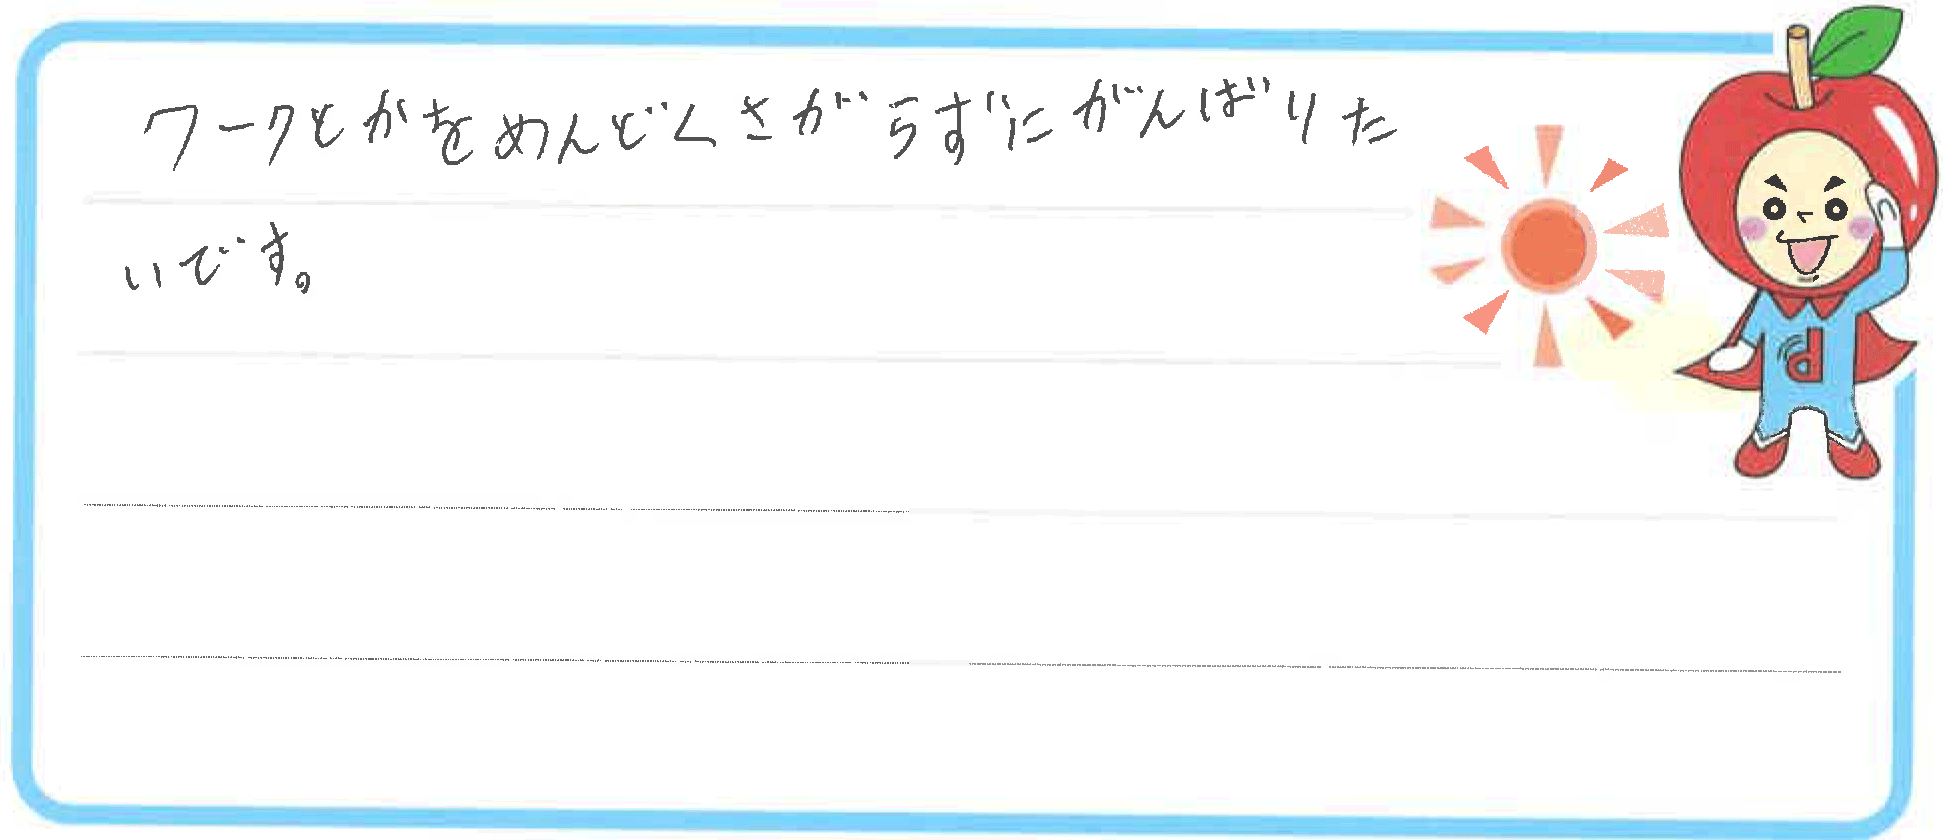 ワークとかをめんどくさがらずにがんばりた
いです。